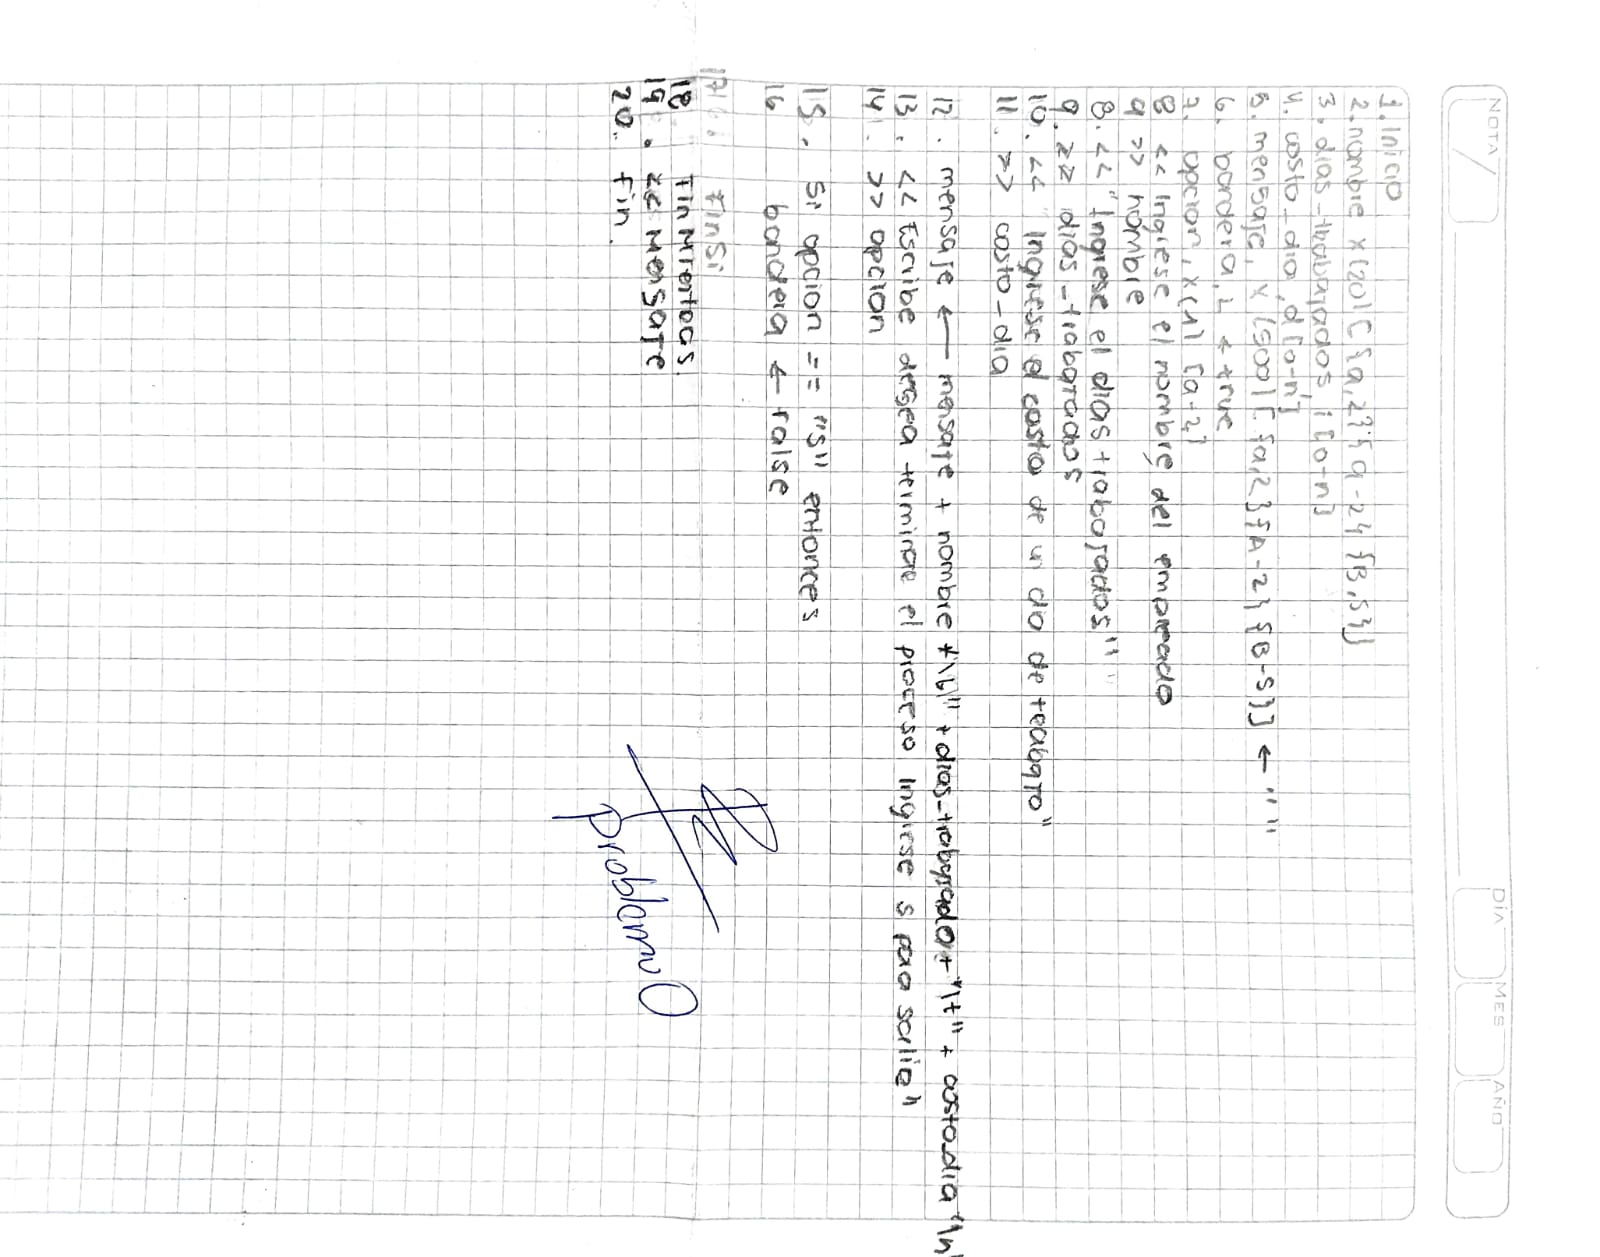 NOTA
DÍA MES AÑO
1. Inicio
2. nombre x(20) [{a,z}{a-z}{B,S}]
3. dias-trabajados, i [0-n]
4. costo-dia, d [0-n]
5. mensaje, x (500) [{a,z}{A-z}{B-S}] ← " "
6. bandera, L ← true
7. opcion, x(1) [a-z]
8 << Ingrese el nombre del empreado
9 >> nombre
8. << "Ingrese el dias trabajados"
9. >> dias-trabajados
10. << "Ingrese el costo de un dia de trabajo"
11. >> costo-dia
12. mensaje ← mensaje + nombre + "\t" + dias-trabajado + "\t" + costo-dia "\n
13. << Escribe desea terminar el proceso Ingrese s para salir"
14. >> opcion
15. Si opcion == "S" entonces
16 bandera ← false
17. FinSi
18 Fin Mientras
19. << Mensaje
20. fin.
Problema 0